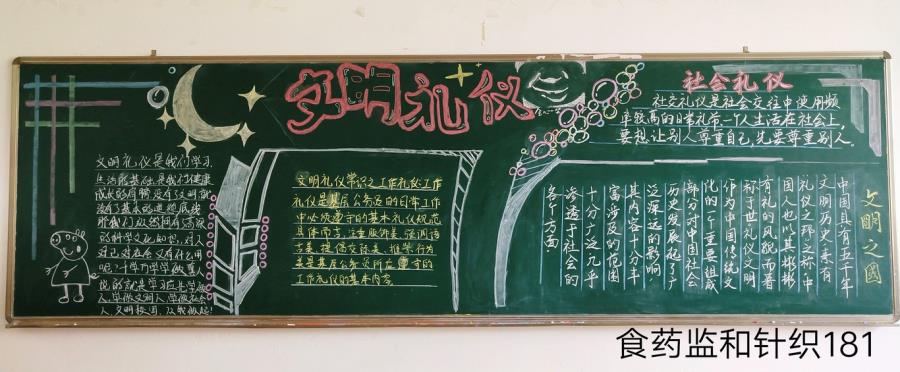 文明礼仪
文明礼仪是我们学习
生活的基础是我们健康
成长的
没有基本的道德底线
那我们纵然拥有
的科学文化知识，对人
对己对社会又有什么用
呢？十学习学学做
也的就是学习应先学
人，学做文明人，学做社会
人，文明校园，从我做起！
文明礼仪常识之工作礼仪：工作
礼仪是基层公务员的日常工作
中必须遵守的基本礼仪规范
具体而言，注重服饰美，强调语
言美，提倡交际美，推崇行为
美是基层公务员所应遵守的
工作礼仪的基本内容。
社会礼仪
社交礼仪是社会交往中使用频
率较高的日常礼节一个人生活在社会上
要想让别人尊重自己，先要尊重别人。
文明之国
中国具有五千年
文明历史，素有
礼仪之邦之称，中
国人也以其彬彬
有礼的风貌而著
称于世，礼仪文明
作为中国传统文
化的一个重要组成
部分对中国社会
历史发展起了广
泛深远的影响
其内容十分丰
富涉及的范围
十分广泛，几乎
渗透于社会的
各个方面。
食药监和针织181